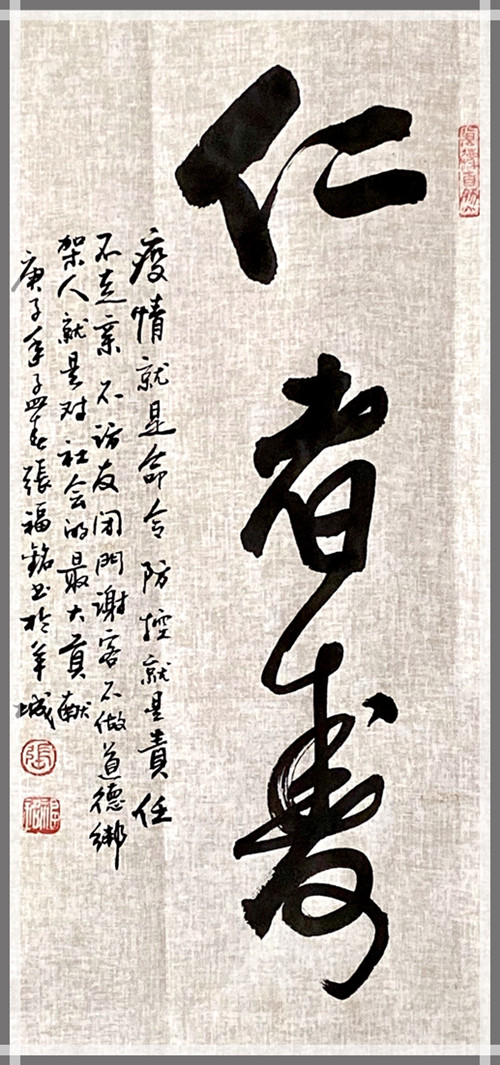 仁者壽
疫情就是命令防控就是責任
不走亲不访友闭門谢客不做道德綁
架人就是对社会的最大貢献
庚子年孟春張福銘书於羊城
張